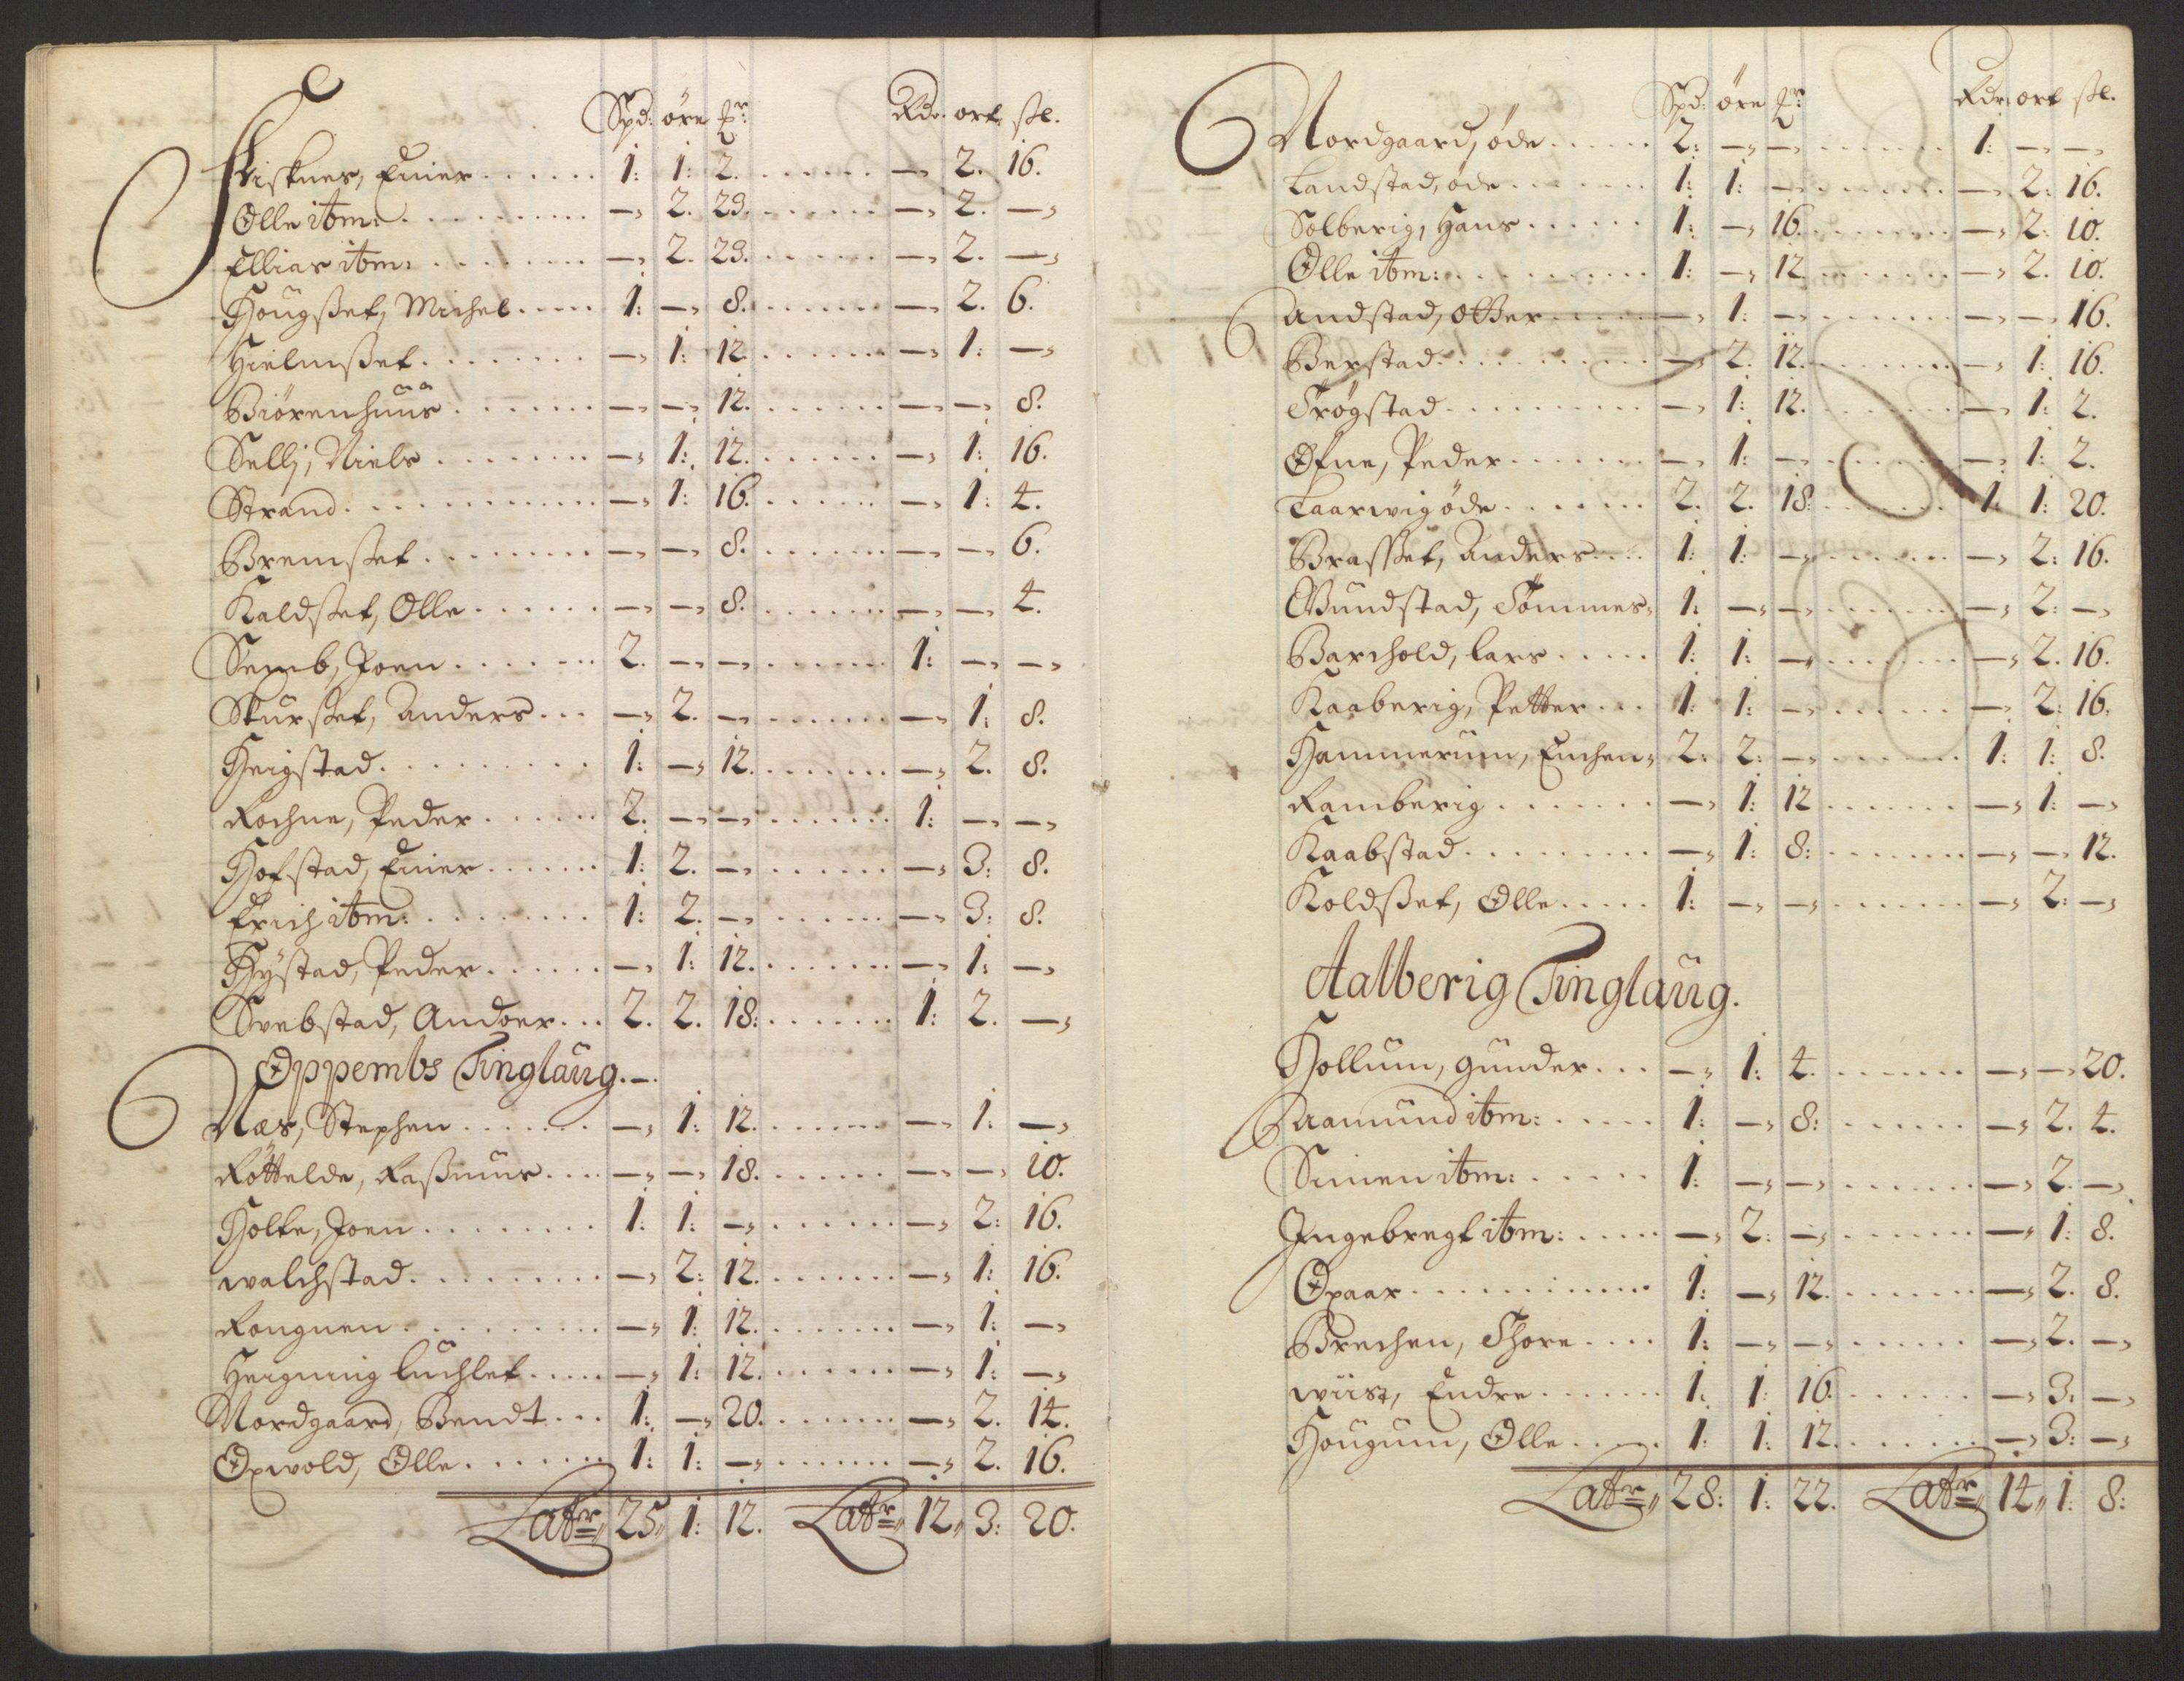 Spd: öre pr: Rdr. ort. sk.
Fiskner, Einer . . . . . . 1: 1: 2. . . . . . . — 2. 16.
Olle itm: . . . . . . . . . — 2. 23. . . . . . . — 2. —
Ellias itm: . . . . . . . — 2. 23. . . . . . . — 2. —
Hougßet, Michel . . . . 1: — 8. . . . . . . — 2. 6.
Hielmßet . . . . . . . . — 1: 12. . . . . . . — 1: —
Biörenhuus . . . . . . . — — 12. . . . . . . — — 8.
Sellj, Niels . . . . . . . — 1: 12. . . . . . . — 1: 16.
Strand . . . . . . . . . . — 1: 16. . . . . . . — 1: 4.
Bremßet . . . . . . . . — — 8. . . . . . . — — 6.
Kaldßet, Olle . . . . . . — — 8. . . . . . . — — 4.
Semb, Joen . . . . . . . 2. — — . . . . . . 1: — —
Skurßet, Anders . . . — 2. — . . . . . . — 1: 8.
Heigstad . . . . . . . . . 1: — 12. . . . . . . — 2. 8.
Rochne, Peder . . . . . 2. — — . . . . . . 1: — —
Hofstad, Einer . . . . . . 1: 2. — . . . . . . — 3: 8.
Erich itm: . . . . . . . . 1: 2. — . . . . . . — 3: 8.
Hÿstad, Peder . . . . . . — 1: 12. . . . . . . — 1: —
Svebstad, Andoer . . . 2. 2. 18: . . . . . . 1: 2. —
Oppembs Tinglaug. —
Næs, Stephen . . . . . . . — 1: 12. . . . . . . — 1: —
Röttelde, Raßmus . . . . — — 18. . . . . . . — — 10.
Holte, Joen . . . . . . . . 1: 1: — . . . . . . — 2: 16.
walchstad . . . . . . . . . — 2: 12. . . . . . . — 1: 16.
Rongnen . . . . . . . . . — 1: 12. . . . . . . — 1: —
Hergunig luchlet . . . . . — 1: 12. . . . . . . — 1: —
Nordgaard, Bendt . . . 1: — 20. . . . . . . — 2. 14.
Opwold, Olle . . . . . . . 1: 1: — . . . . . . — 2. 16.
Lattr 25„ 1: 12. Lattr 12„ 3: 20.
Spd: öre pr: Rdr: ort sk.
Nordgaard, öde . . . . . . 2: — — . . . . . . 1: — —
Landstad, öde . . . . . . 1: 1: — . . . . . . — 2: 16.
Solberig, Hans . . . . . . 1: — 16. . . . . . . — 2: 10.
Olle itm: . . . . . . . . . 1: — 12 . . . . . . — 2. 10.
Andstad, Otter . . . . . — 1: — . . . . . . — — 16.
Berstad . . . . . . . . . — 2. 12. . . . . . . — 1: 16.
Trögstad . . . . . . . . . — 1: 12. . . . . . . — 1: 2.
Ofne, Peder . . . . . . . — 1: — . . . . . . — 1: 2.
Laarwig öde . . . . . . . 2. 2. 18. . . . . . . 1: 1: 20.
Brasßet, Anders . . . . 1: 1: — . . . . . . — 2: 16.
Wundstad, Tommes, 1: — — . . . . . . — 2: —
Barchold, lars . . . . . 1: 1: — . . . . . . — 2. 16.
Kaaberig, Petter . . . 1: 1: — . . . . . . — 2: 16.
Hammerum, Enchen, 2: 2: — . . . . . . 1: 1: 8.
Ramberig . . . . . . . — 1: 12 . . . . . . — 1: —
Kaabstad . . . . . . . . . — 1: 8: . . . . . . — — 12.
Koldßet, Olle . . . . . 1: — — . . . . . . — 2: —
Aalberig Tinglaug.
Hollum, Gunder . . . — 1: 4. . . . . . . — — 20.
Aamund itm: . . . . . 1: — 8: . . . . . . — 2. 4.
Simen itm: . . . . . . 1: — — . . . . . . — 2. —
Ingebregt itm: . . . . . — 2: — . . . . . . — 1: 8.
Opaar . . . . . . . . . . . 1: — 12. . . . . . . — 2. 8.
Brechen, Thore . . . . 1: — — . . . . . . — 2. —
wiist, Endre . . . . . . . 1: 1: 16. . . . . . . — 3: —
Hougum, Olle . . . . . 1: 1: 12. . . . . . . — 3: —
Lattr„ 28: 1: 22. Lattr„ 14„ 1: 8: